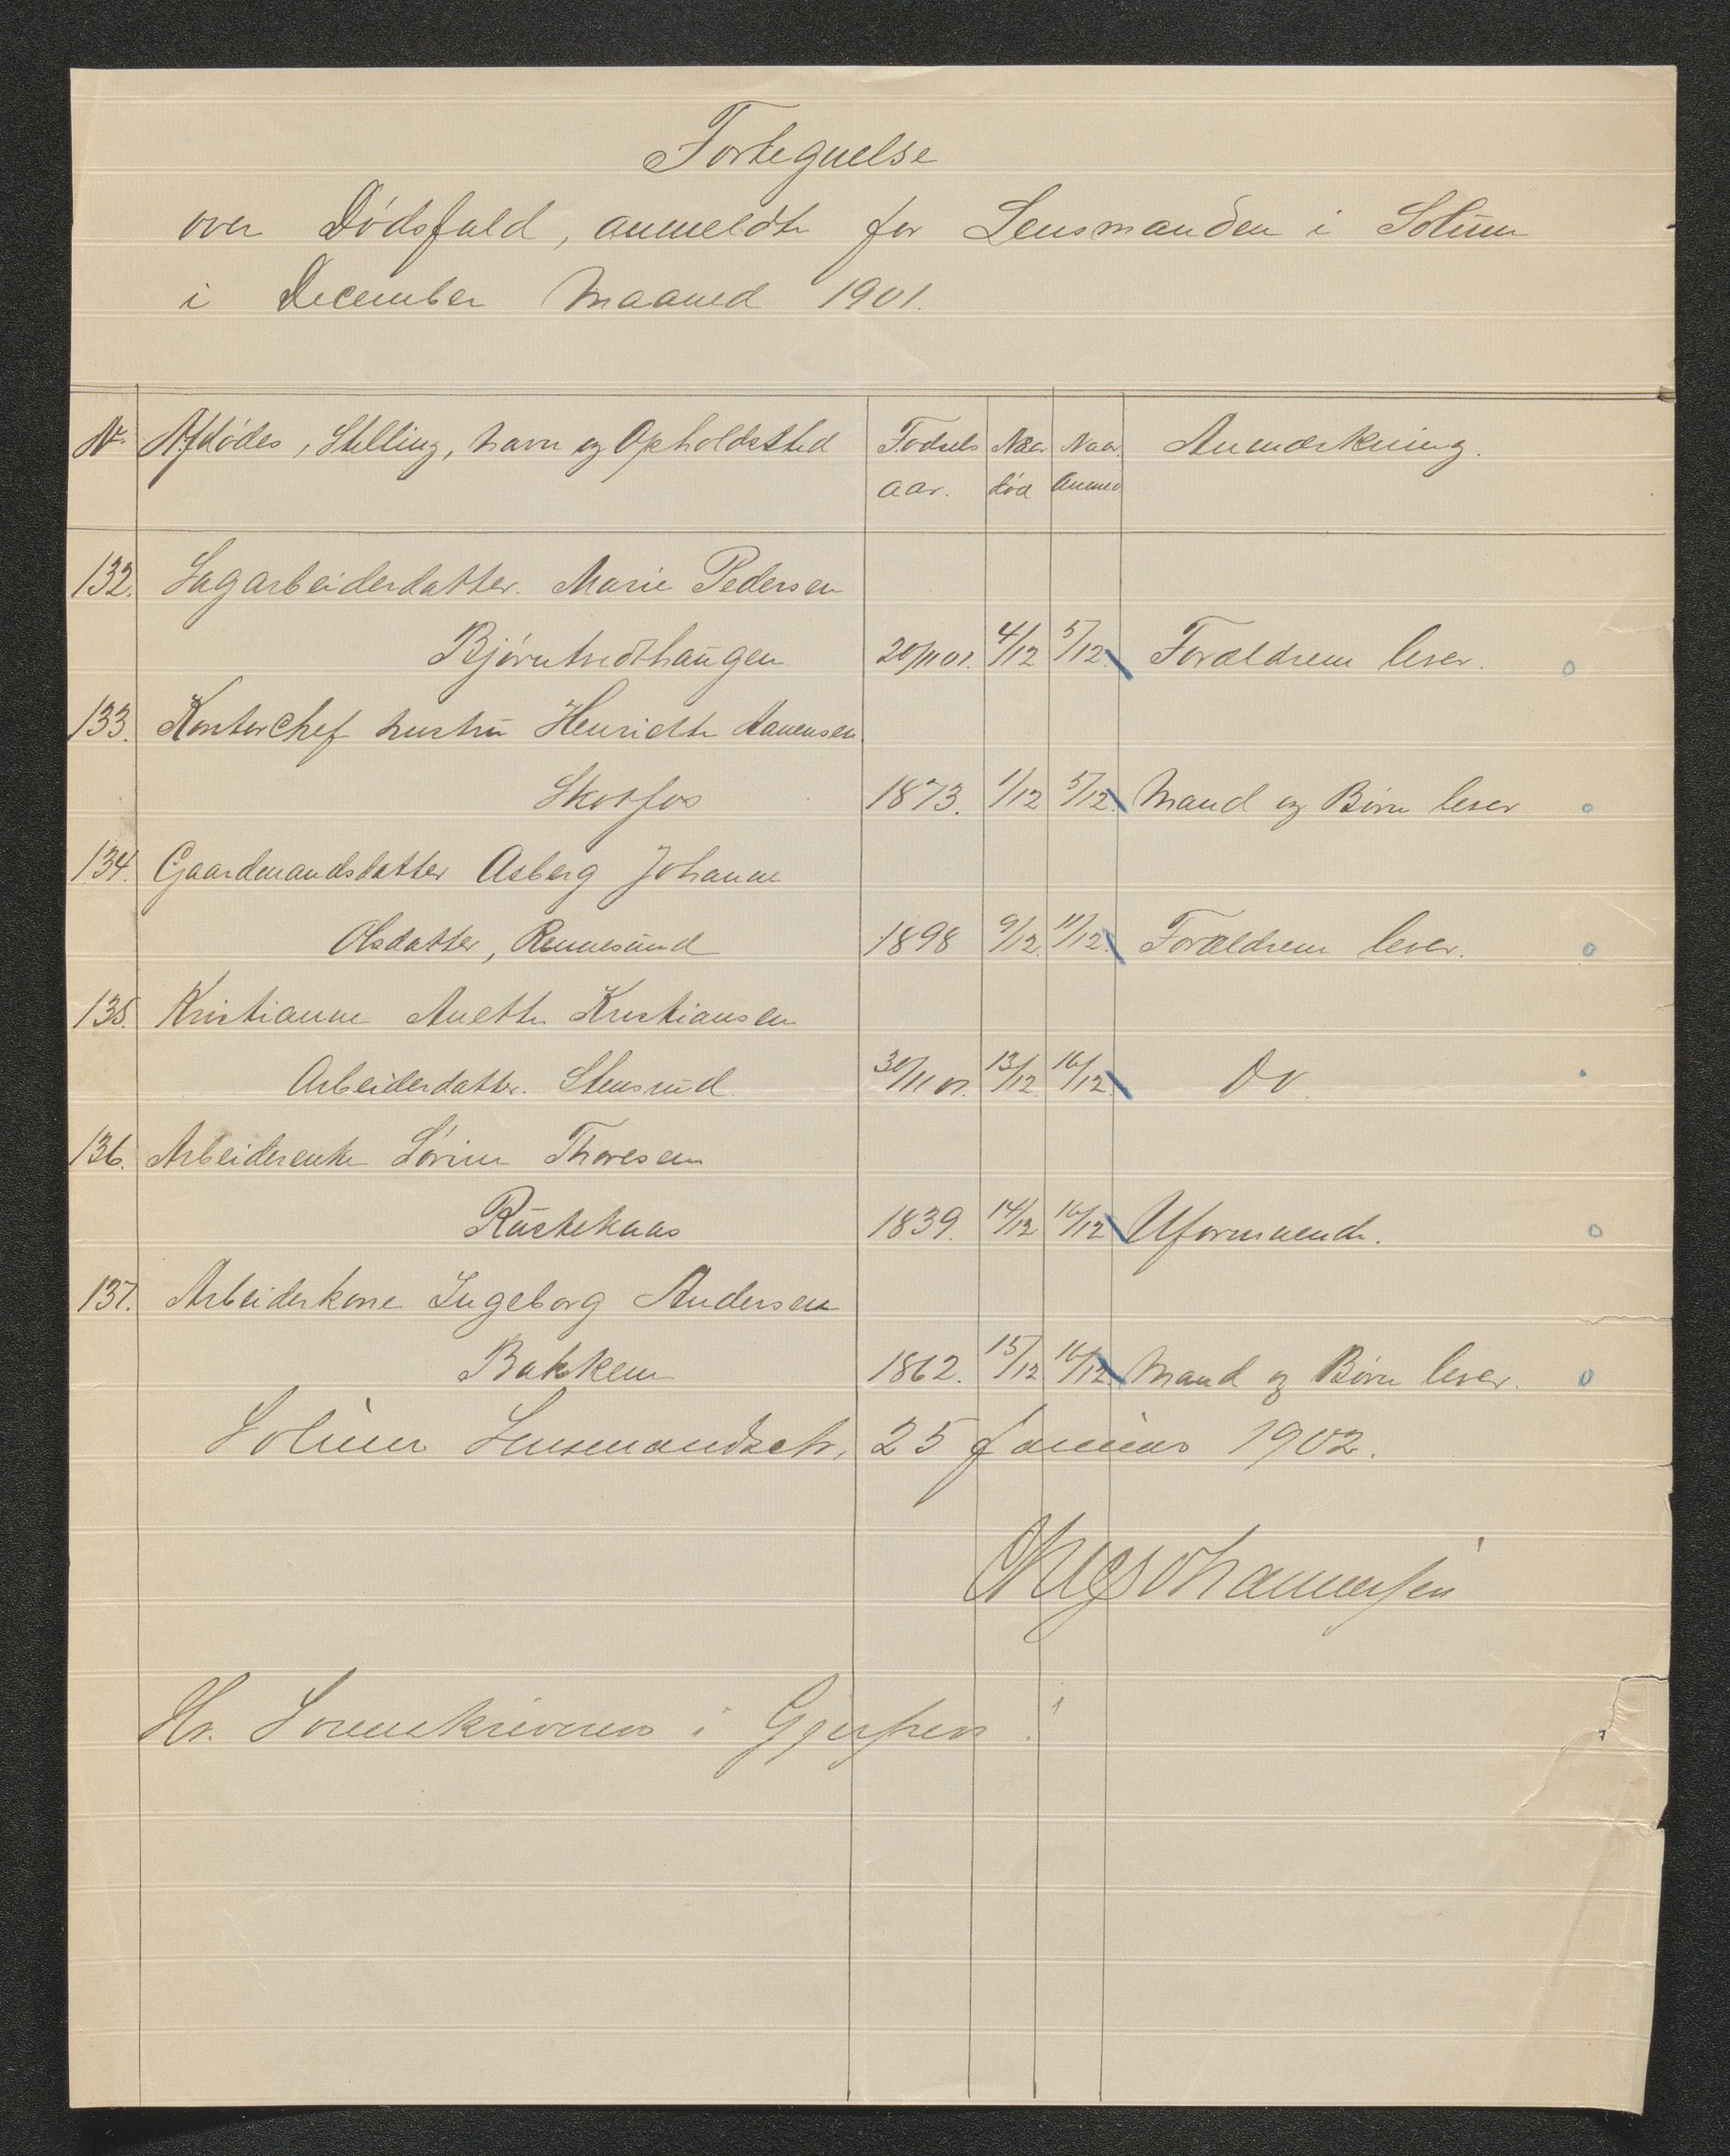 Fortegnelse
over Dødsfald, anmeldte for Lensmanden i Solum
i December Maaned 1901.
No. Afdødes, Stilling, Navn og Opholdssted Fødsels Naar Naar Anmærkning.
aar. død Anmed
132. Sagarbeiderdatter. Marie Pedersen
Bjørntvedthaugen 20/11 01. 4/12 5/12. Forældrene lever. o
133. Kontorchef hustru Henriette
Skotfos 1873. 1/12 5/12. Mand og Børn lever o
134. Gaardmandsdatter Asberg Johanne
Olsdatter, Rennesund 1898 9/12. 11/12. Forældrene lever. o
135. Kristianne Anette Kristiansen
Arbeiderdatter. Stensrud 30/11 01. 13/12. 16/12. Do.
136. Arbeiderenke Sørine Thoresen
Rustekaas 1839. 14/12 16/12 Uformuende. o
137. Arbeiderkone Ingeborg Andersen
Bakken 1862. 15/12 16/12. Mand og Børn lever. o
Solum Lensmandsctr, 25 Januar 1902.
Johannessen
Hr. Sorenskriveren i Gjerpen!